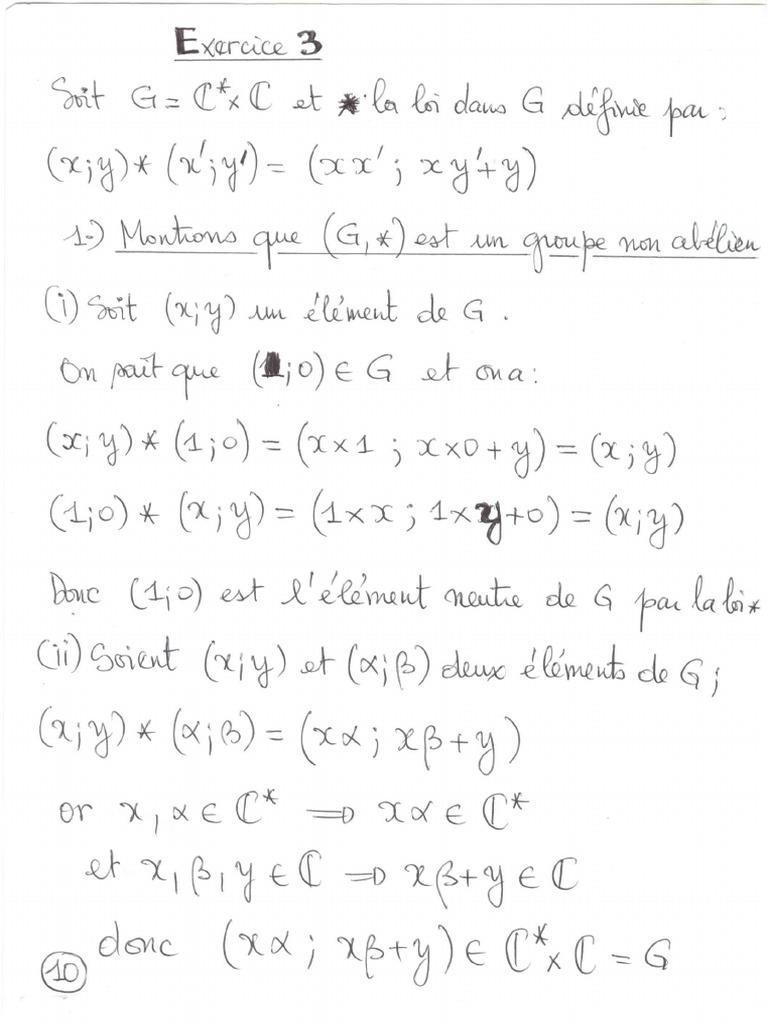 Exercice 3
Soit G = ℂ* × ℂ et * la loi dans G définie par :
(x;y) * (x';y') = (xx' ; xy'+y)
1-) Montrons que (G,*) est un groupe non abélien
(i) Soit (x;y) un élément de G.
On sait que (1;0) ∈ G et on a :
(x;y) * (1;0) = (x×1 ; x×0+y) = (x;y)
(1;0) * (x;y) = (1×x ; 1×y+0) = (x;y)
Donc (1;0) est l'élément neutre de G par la loi *
(ii) Soient (x;y) et (α;β) deux éléments de G ;
(x;y) * (α;β) = (xα ; xβ+y)
or x, α ∈ ℂ* ⟹ xα ∈ ℂ*
et x, β, y ∈ ℂ ⟹ xβ+y ∈ ℂ
donc (xα ; xβ+y) ∈ ℂ* × ℂ = G
10